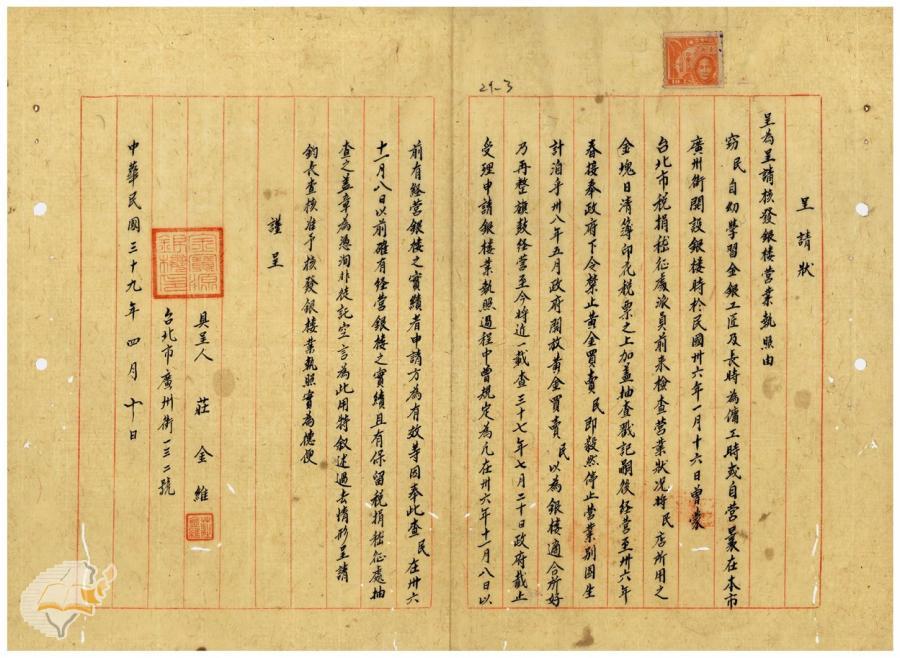 29-3
呈請狀
呈為呈請核發銀樓營業執照由
竊民自幼學習金銀工匠及長時為傭工時或自營曩在本市
廣州街開設銀樓時於民國卅六年一月十六日曾蒙
台北市稅捐稽征處派員前来檢查營業狀况將民店所用之
金塊日清簿印花稅票之上加盖抽查戳記嗣後経营至卅六年
春接奉政府下令禁止黃金買賣民即毅然停止营業別图生
計泊乎卅八年五月政府開放黃金買賣民以為銀楼適合所好
乃再整旗鼓経营至今将近一載查三十七年七月二十日政府截止
受理申請銀楼業執照過程中曾規定為凡在卅六年十一月八日以
前有経营銀楼之實績者申請方為有效等因奉此查民在卅六
十一月八日以前確有経营銀楼之實績且有保留稅捐稽征處抽
查之盖章為憑洵非徒託空言為此用特叙述過去情形呈請
鈞長查核准予核發銀楼業執照實為德便
謹呈
具呈人 莊金維
台北市廣州街一三二號
中華民國三十九年四月十日